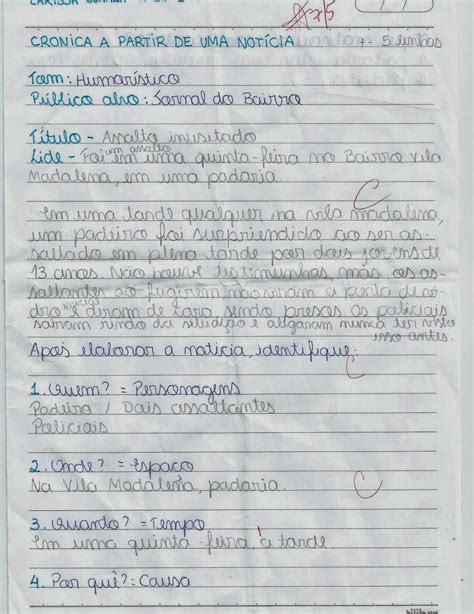 CRONICA A PARTIR DE UMA NOTÍCIA +- 5 linhas
Tom: Humorístico
Público alvo: Jornal do Bairro
Título - Assalto inusitado
um assalto
Lide - Foi em uma quinta-feira no Bairro Vila
Madalena, em uma padaria.
C
Em uma tarde qualquer, na vila madalena,
um padeiro foi surpriendido ao ser as-
saltado em plena tarde por dois jovens de
13 anos. Não houve testimunhas, mas os as-
saltantes ao fugirem não viram a porta de vi-
dro e diram de cara, sendo presos os policiais
sairam rindo da situação e alegaram nunca ter visto
isso antes.
Após elaborar a notícia, identifique:
C
1. Quem? = Personagens
Padeiro / Dois assaltantes
Policiais
2. Onde? = Espaço
Na Vila Madalena, padaria.
C
3. Quando? = Tempo
Em uma quinta-feira, à tarde
4. Por quê? = Causa